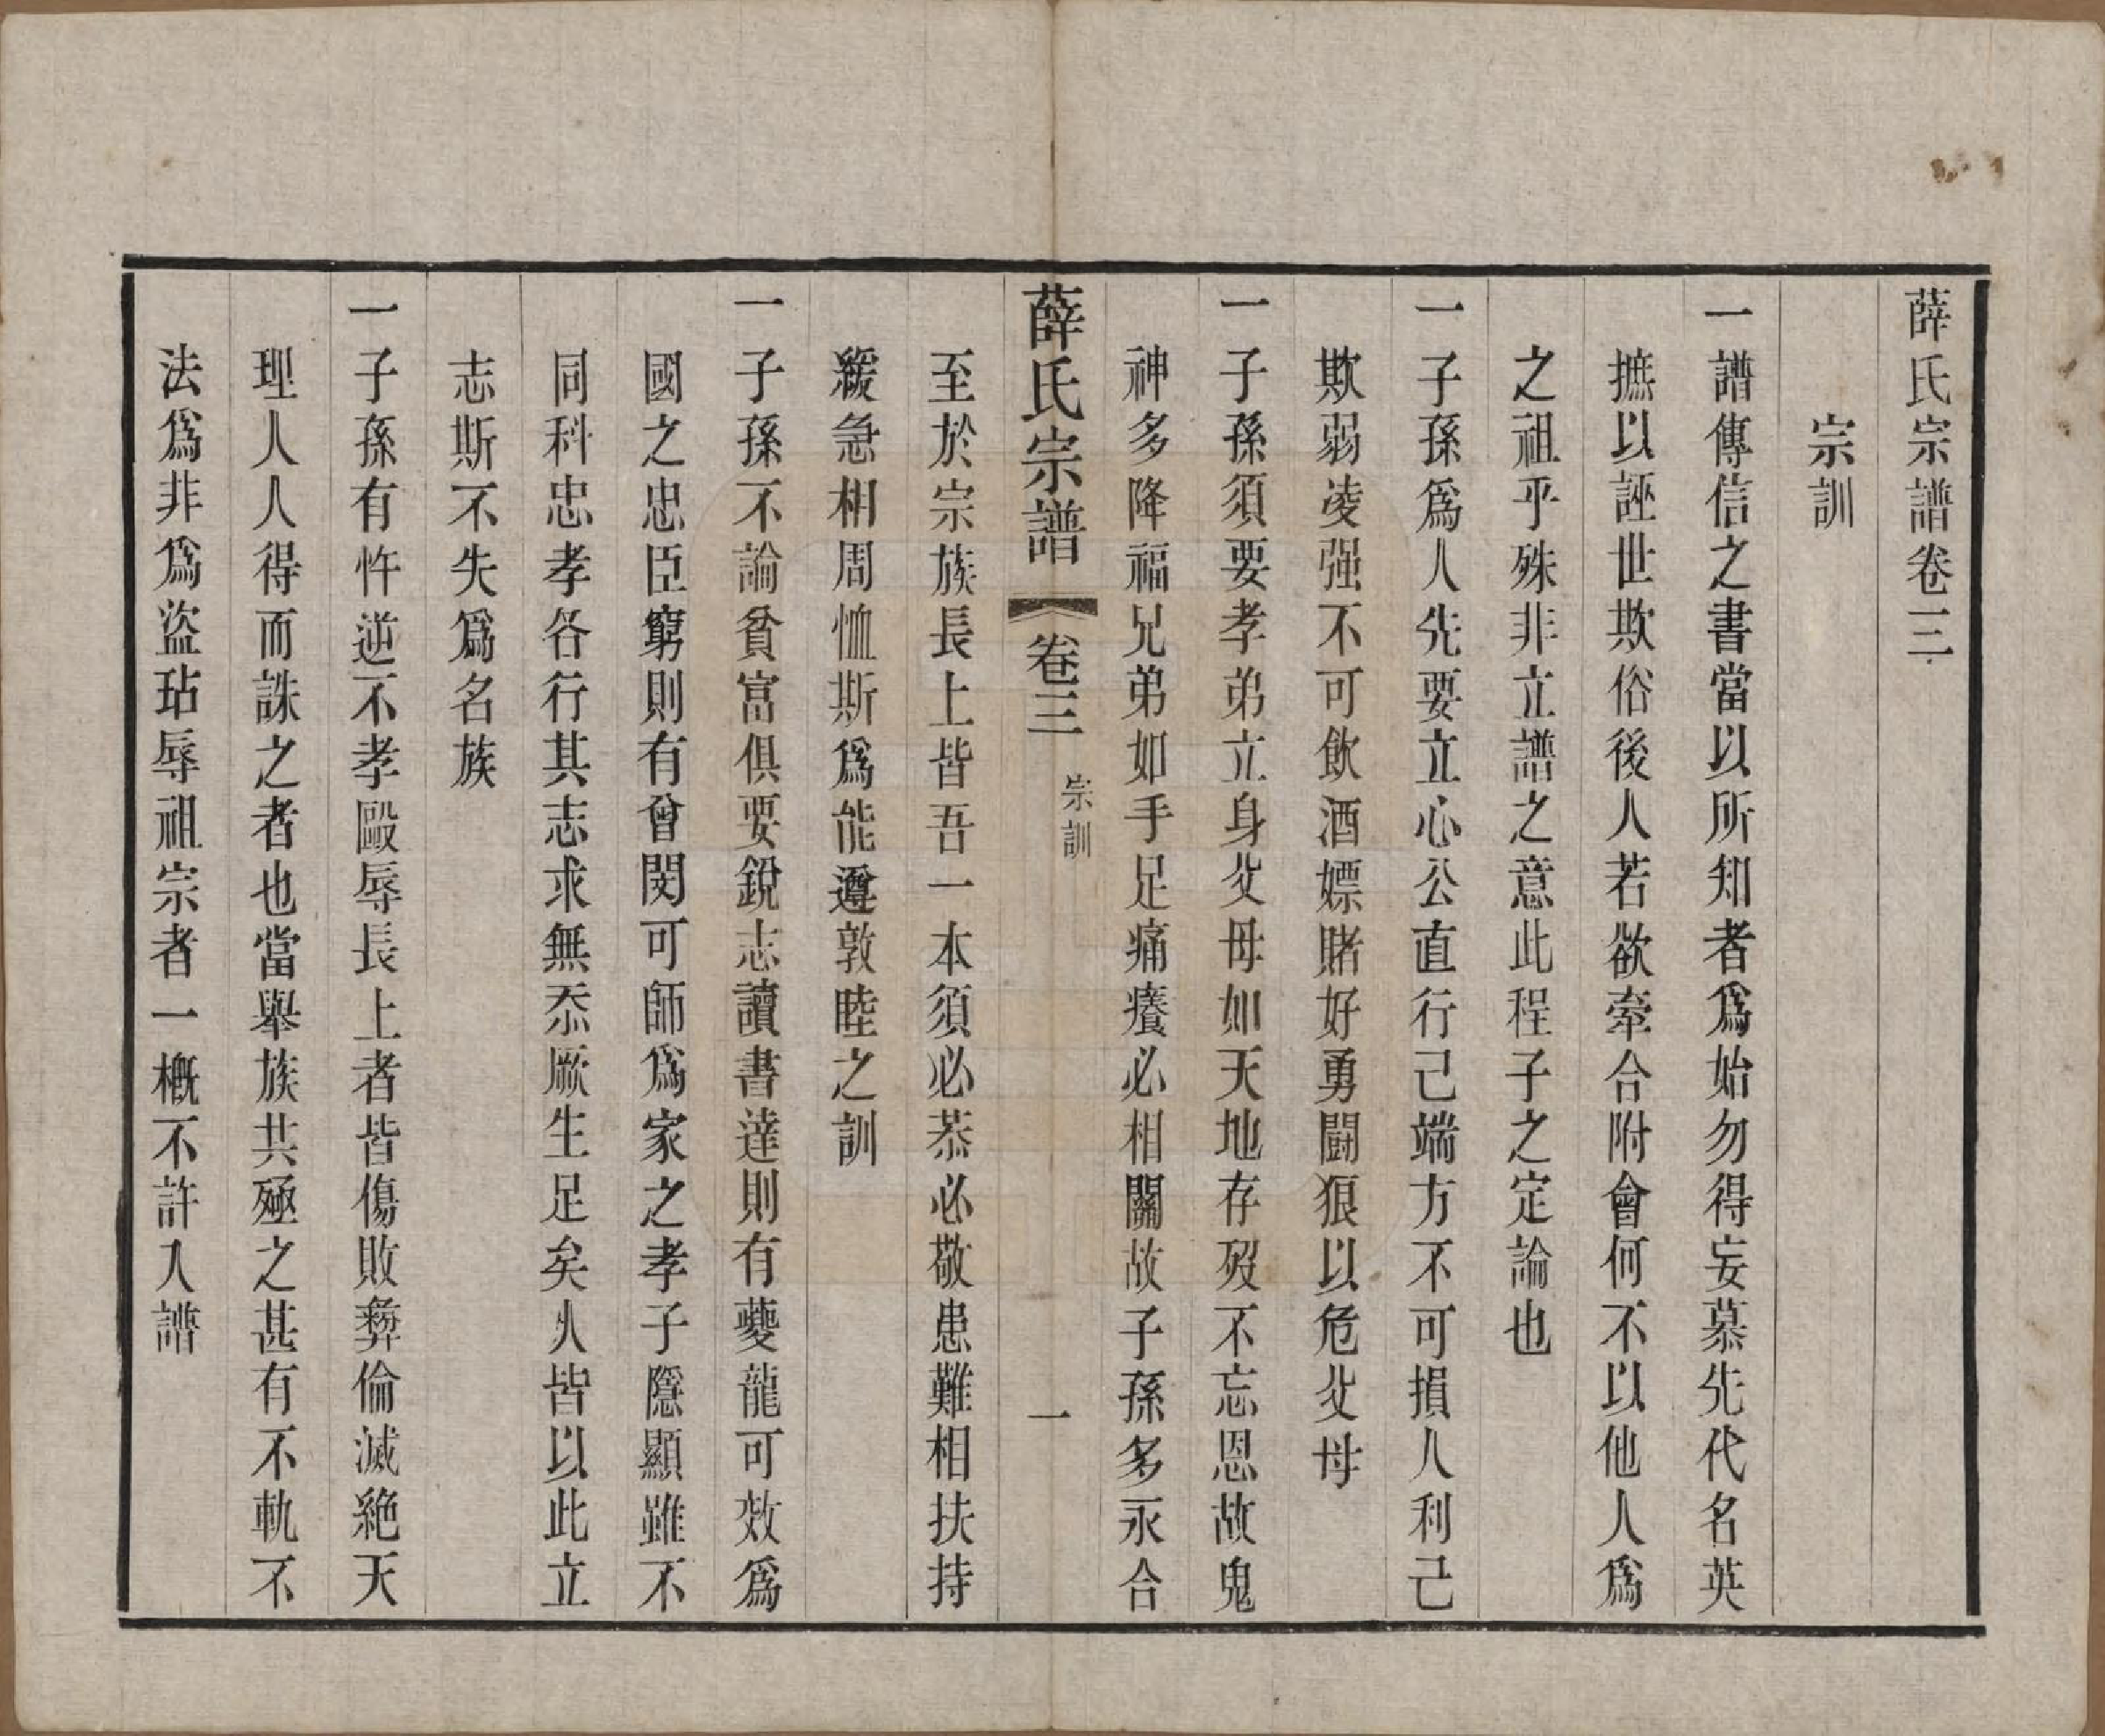 薛氏宗譜卷三
宗訓
一譜傳信之書當以所知者爲始勿得妄慕先代名英
摭以誣世欺俗後人若欲牽合附會何不以他人爲
之祖乎殊非立譜之意此程子之定論也
一子孫爲人先要立心公直行己端方不可損人利己
欺弱凌强不可飲酒嫖賭好勇鬪狠以危父母
一子孫須要孝弟立身父母如天地存歿不忘恩故鬼
神多降福兄弟如手足痛癢必相關故子孫多永合
薛氏宗譜 卷三 宗訓 一
至於宗族長上皆吾一本須必恭必敬患難相扶持
緩急相周恤斯爲能遵敦睦之訓
一子孫不論貧富俱要銳志讀書達則有夔龍可效爲
國之忠臣窮則有曾閔可師爲家之孝子隱顯雖不
同科忠孝各行其志求無忝厥生足矣人皆以此立
志斯不失爲名族
一子孫有忤逆不孝毆辱長上者皆傷敗彝倫滅絶天
理人人得而誅之者也當舉族共殛之甚有不軌不
法爲非爲盜玷辱祖宗者一概不許入譜